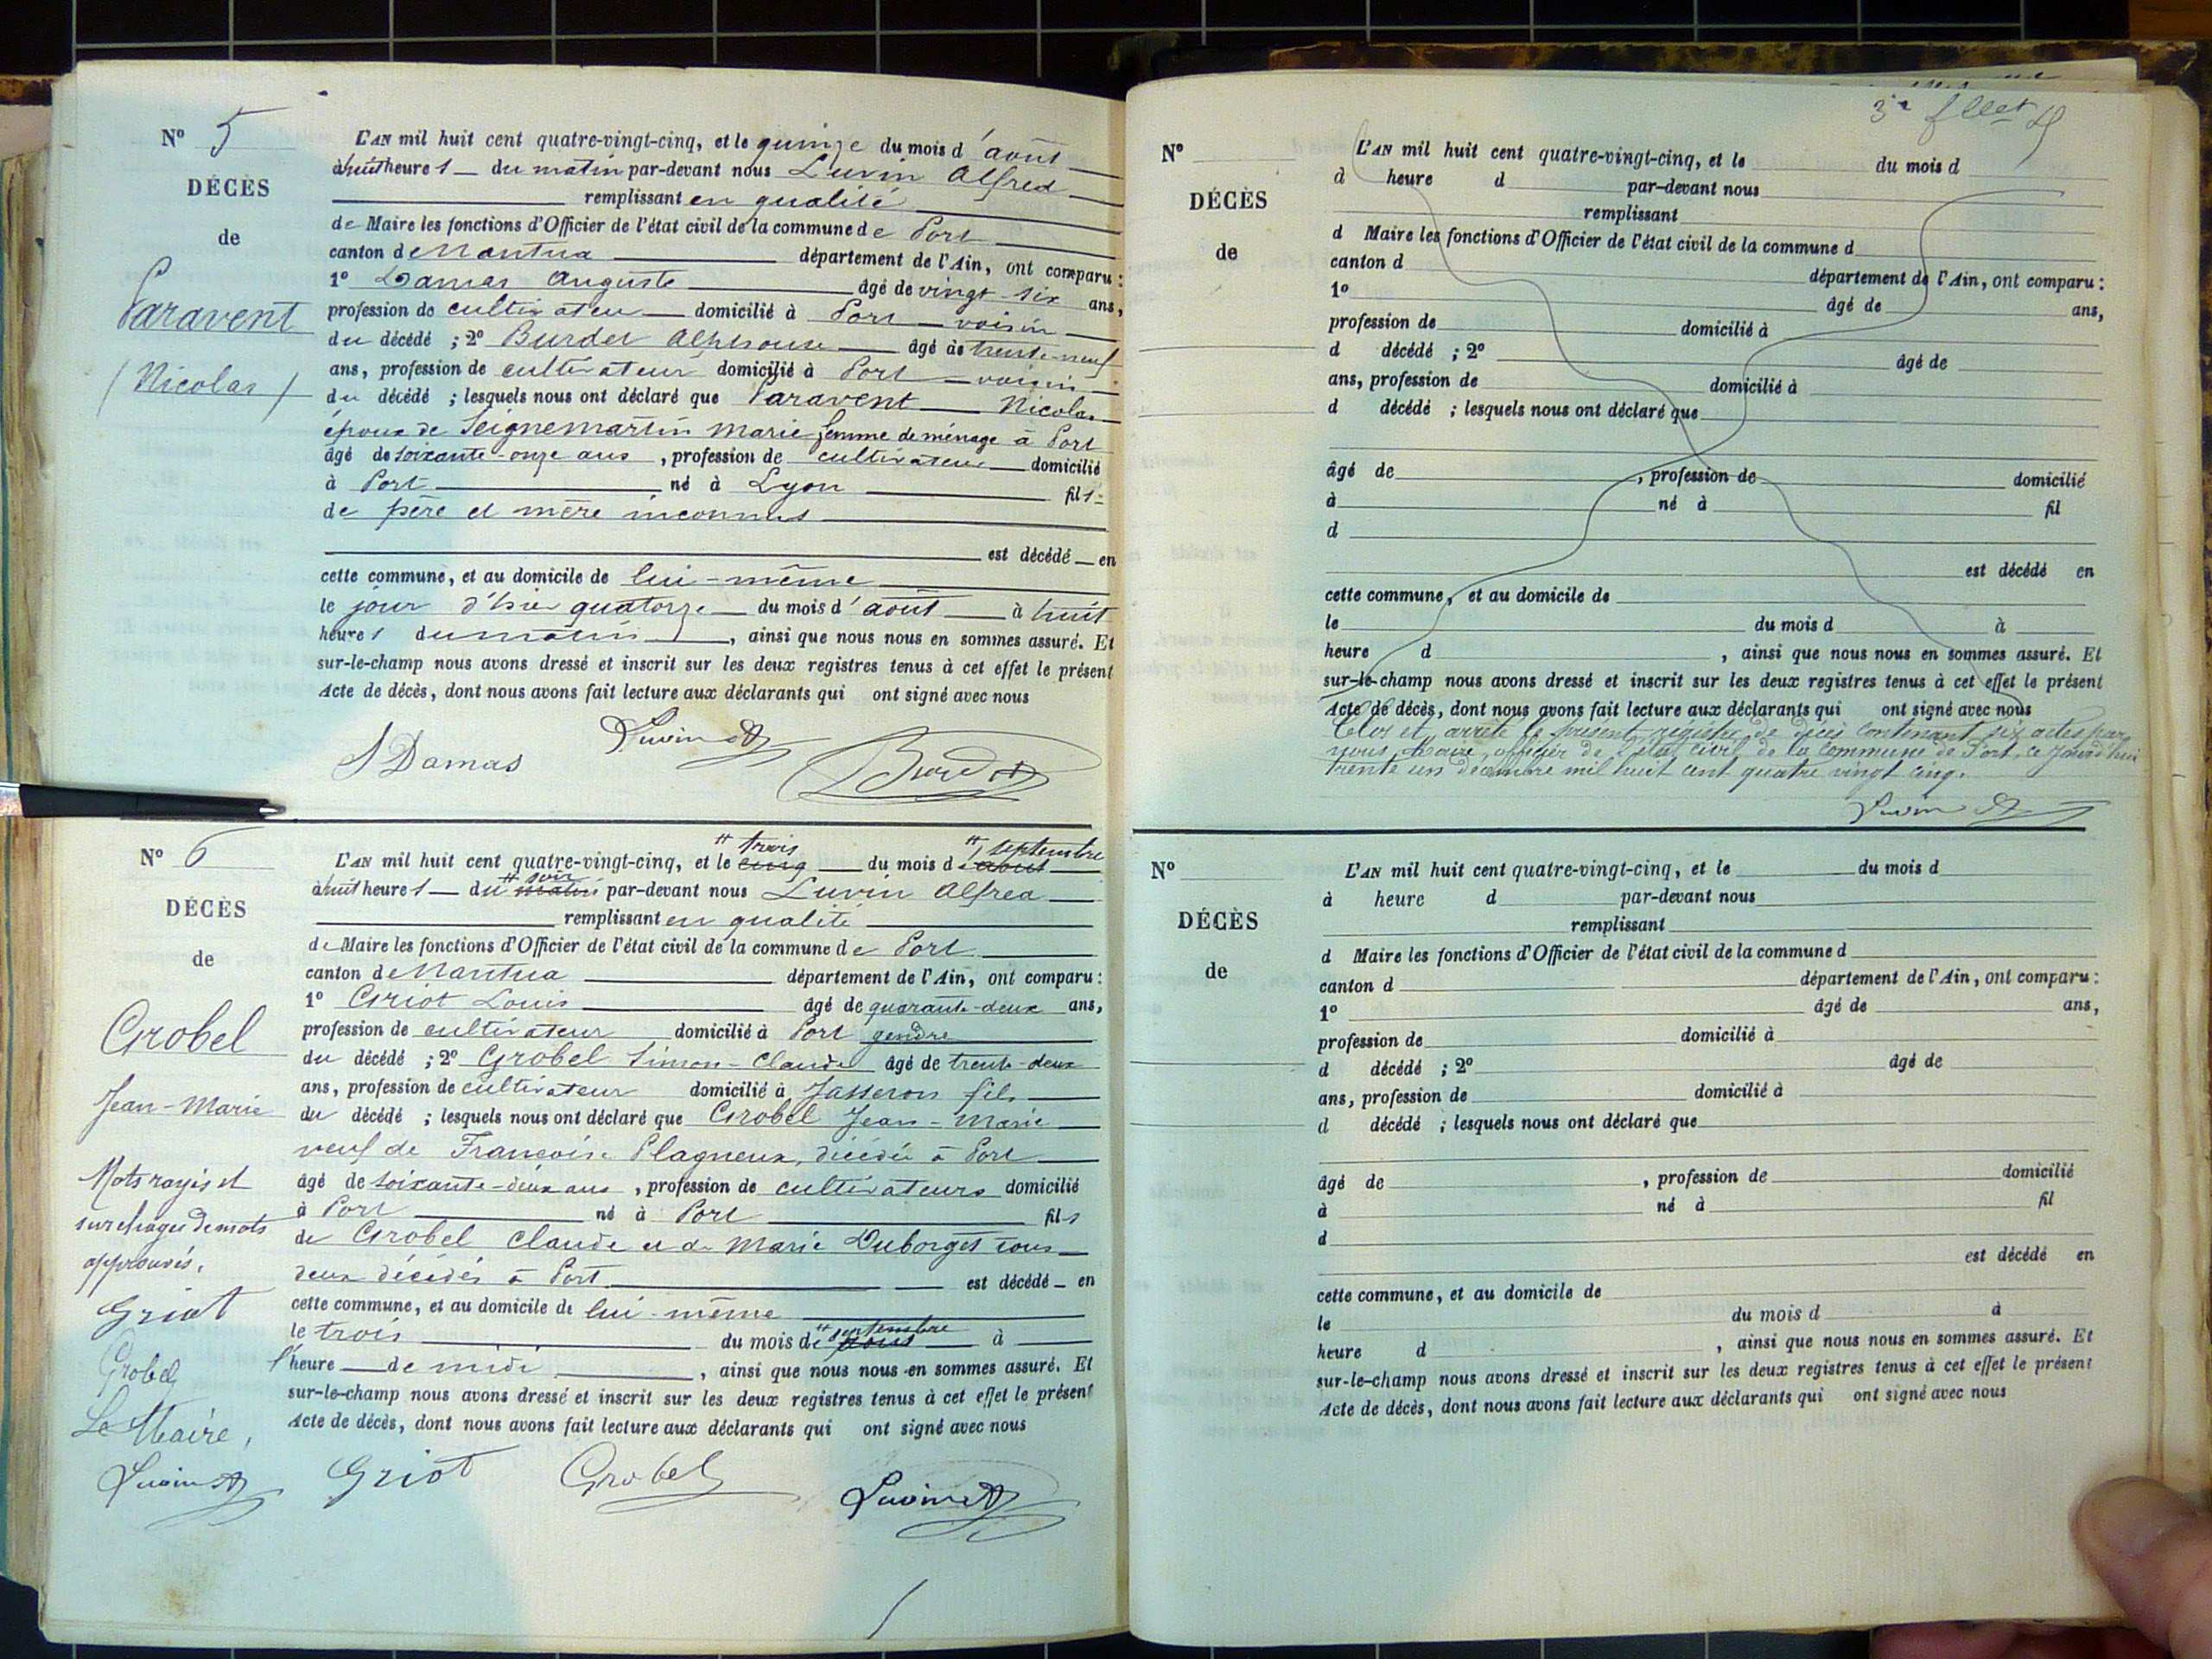 Nº 5
DÉCÈS
de
Paravent
(Nicolas)
L'AN mil huit cent quatre-vingt-cinq, et le quinze du mois d'août
à huit heures du matin par-devant nous Luvin Alfred
remplissant en qualité
de Maire les fonctions d'Officier de l'état civil de la commune de Port
canton de Nantua département de l'Ain, ont comparu :
1º Damas Auguste âgé de vingt-six ans,
profession de cultivateur domicilié à Port voisin
du décédé ; 2º Burdet Alphonse âgé de trente-neuf
ans, profession de cultivateur domicilié à Port voisin
du décédé ; lesquels nous ont déclaré que Paravent Nicolas
époux de Seignemartin Marie femme de ménage à Port
âgé de soixante-onze ans, profession de cultivateur domicilié
à Port né à Lyon fils
de père et mère inconnus
est décédé en
cette commune, et au domicile de lui-même
le jour d'hier quatorze du mois d'août à huit
heures du matin, ainsi que nous nous en sommes assuré. Et
sur-le-champ nous avons dressé et inscrit sur les deux registres tenus à cet effet le présent
Acte de décès, dont nous avons fait lecture aux déclarants qui ont signé avec nous
Luvin A
Damas
Burdet
Nº 6
DÉCÈS
de
Grobel
Jean-Marie
Mots rayés et
surchages de mots
approuvés.
Griot
Grobel
Le Maire,
Luvin A
trois septembre
L'AN mil huit cent quatre-vingt-cinq, et le cinq du mois d'août
soir
à huit heures du matin par-devant nous Luvin Alfred
remplissant en qualité
de Maire les fonctions d'Officier de l'état civil de la commune de Port
canton de Nantua département de l'Ain, ont comparu :
1º Griot Louis âgé de quarante-deux ans,
profession de cultivateur domicilié à Port gendre
du décédé ; 2º Grobel Simon-Claude âgé de trente-deux
ans, profession de cultivateur domicilié à Jasseron fils
du décédé ; lesquels nous ont déclaré que Grobel Jean-Marie
veuf de Françoise Plagneux, décédée à Port
âgé de soixante-deux ans, profession de cultivateurs domicilié
à Port né à Port fils
de Grobel Claude et de Marie Duborget tous
deux décédés à Port est décédé en
cette commune, et au domicile de lui-même
septembre
le trois du mois d'août à
l'heure de midi, ainsi que nous nous en sommes assuré. Et
sur-le-champ nous avons dressé et inscrit sur les deux registres tenus à cet effet le présent
Acte de décès, dont nous avons fait lecture aux déclarants qui ont signé avec nous
Griot Grobel Luvin A
3e fllet
Nº
DÉCÈS
de
L'AN mil huit cent quatre-vingt-cinq, et le du mois d
à heure d par-devant nous
remplissant
d Maire les fonctions d'Officier de l'état civil de la commune d
canton d département de l'Ain, ont comparu :
1º âgé de ans,
profession de domicilié à
d décédé ; 2º âgé de
ans, profession de domicilié à
d décédé ; lesquels nous ont déclaré que
âgé de , profession de domicilié
à né à fil
d
est décédé en
cette commune, et au domicile de
le du mois d à
heure d , ainsi que nous nous en sommes assuré. Et
sur-le-champ nous avons dressé et inscrit sur les deux registres tenus à cet effet le présent
Acte de décès, dont nous avons fait lecture aux déclarants qui ont signé avec nous
Clos et arrêté le présent régistre de décès contenant six actes par
nous Maire, officier de l'état civil de la Commune de Port, ce jourd'hui
trente un décembre mil huit cent quatre vingt cinq.
Luvin A
Nº
DÉCÈS
de
L'AN mil huit cent quatre-vingt-cinq, et le du mois d
à heure d par-devant nous
remplissant
d Maire les fonctions d'Officier de l'état civil de la commune d
canton d département de l'Ain, ont comparu :
1º âgé de ans,
profession de domicilié à
d décédé ; 2º âgé de
ans, profession de domicilié à
d décédé ; lesquels nous ont déclaré que
âgé de , profession de domicilié
à né à fil
d
est décédé en
cette commune, et au domicile de
le du mois d à
heure d , ainsi que nous nous en sommes assuré. Et
sur-le-champ nous avons dressé et inscrit sur les deux registres tenus à cet effet le présent
Acte de décès, dont nous avons fait lecture aux déclarants qui ont signé avec nous